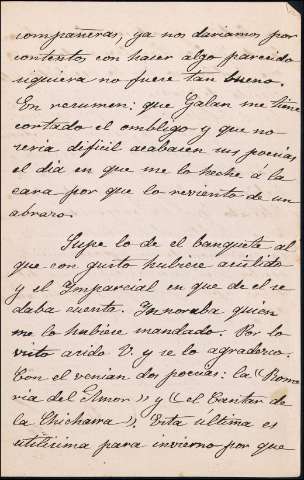 compañeras, ya nos dariamos por
contestos con hacer algo parecido
siquiera no fuere tan bueno.
En resumen: que Galan me tiene
cortado el ombligo y que no
seria dificil acabasen sus poesias
el dia en que me lo heche a la
cara por que lo reviento de un
abrazo.
Supe lo de el banquete al
que con gusto hubiese asistido
y el Imparcial en que de el se
daba cuenta. Innoraba quien
me lo hubiese mandado. Por lo
visto asido V. y se lo agradezco.
Con el venian dos poesias: la "Rome
ria del Amor" y "el Cantar de
la Chicharra". Esta última es
utilisima para invierno por que